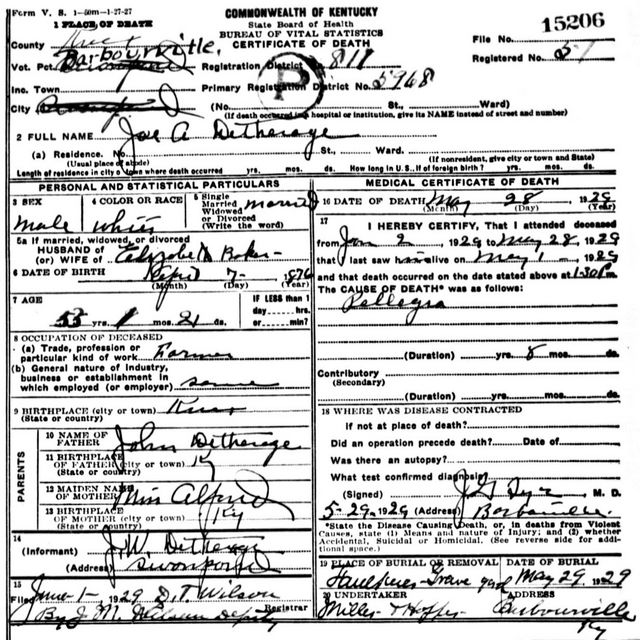 Form V. S. 1-50m-1-27-27
COMMONWEALTH OF KENTUCKY
State Board of Health
BUREAU OF VITAL STATISTICS
CERTIFICATE OF DEATH
15206
File No.
Registered No. 57
1 PLACE OF DEATH
County Knox
Vot. Pct. Barbourville,
Registration District No. 811
Inc. Town
Primary Registration District No. 5968
City
(No. St., Ward)
(If death occurred in a hospital or institution, give its NAME instead of street and number)
2 FULL NAME Joe A Detherage
(a) Residence. No. St., Ward.
(Usual place of abode) (If nonresident, give city or town and State)
Length of residence in city or town where death occurred yrs. mos. ds. How long in U.S., if of foreign birth? yrs. mos. ds.
PERSONAL AND STATISTICAL PARTICULARS
3 SEX
male
4 COLOR OR RACE
white
5 Single
Married
Widowed
or Divorced
(Write the word)
married
5a If married, widowed, or divorced
HUSBAND OF
(or) WIFE OF Elizabeth Baker
6 DATE OF BIRTH Sept 7- 1876
(Month) (Day) (Year)
7 AGE
yrs. mos. 21 ds.
IF LESS than 1
day hrs.
or min.
8 OCCUPATION OF DECEASED
(a) Trade, profession or
particular kind of work Farmer
(b) General nature of industry,
business or establishment in
which employed (or employer) same
9 BIRTHPLACE (city or town) Knox
(State or country)
PARENTS
10 NAME OF
FATHER John Detherage
11 BIRTHPLACE
OF FATHER (city or town) Ky
(State or country)
12 MAIDEN NAME
OF MOTHER Miss Alford
13 BIRTHPLACE
OF MOTHER (city or town) Ky
(State or country)
14
(Informant) J.W. Detherage
(Address)
15
Filed June-1-, 1929 D.T. Wilson
Registrar
By J. M. Wilson Deputy
MEDICAL CERTIFICATE OF DEATH
16 DATE OF DEATH May 28, 1929
(Month) (Day) (Year)
17
I HEREBY CERTIFY, That I attended deceased
from Jan 2, 1929 to May 28, 1929
that I last saw him alive on May 1, 1929
and that death occurred on the date stated above at 1:30 P.m.
The CAUSE OF DEATH* was as follows:
Pellegra
(Duration) yrs. 8 mos. ds.
Contributory
(Secondary)
(Duration) yrs. mos. ds.
18 WHERE WAS DISEASE CONTRACTED
if not at place of death?
Did an operation precede death? Date of
Was there an autopsy?
What test confirmed diagnosis?
(Signed) M. D.
5-29-, 1929 (Address) Barbourville
*State the Disease Causing Death, or, in deaths from Violent
Causes, state (1) Means and nature of Injury; and (2) whether
Accidental, Suicidal or Homicidal. (See reverse side for addi-
tional space.)
19 PLACE OF BURIAL OR REMOVAL DATE OF BURIAL
Grave yard May 29 1929
20 UNDERTAKER ADDRESS
Barbourville
Ky
P